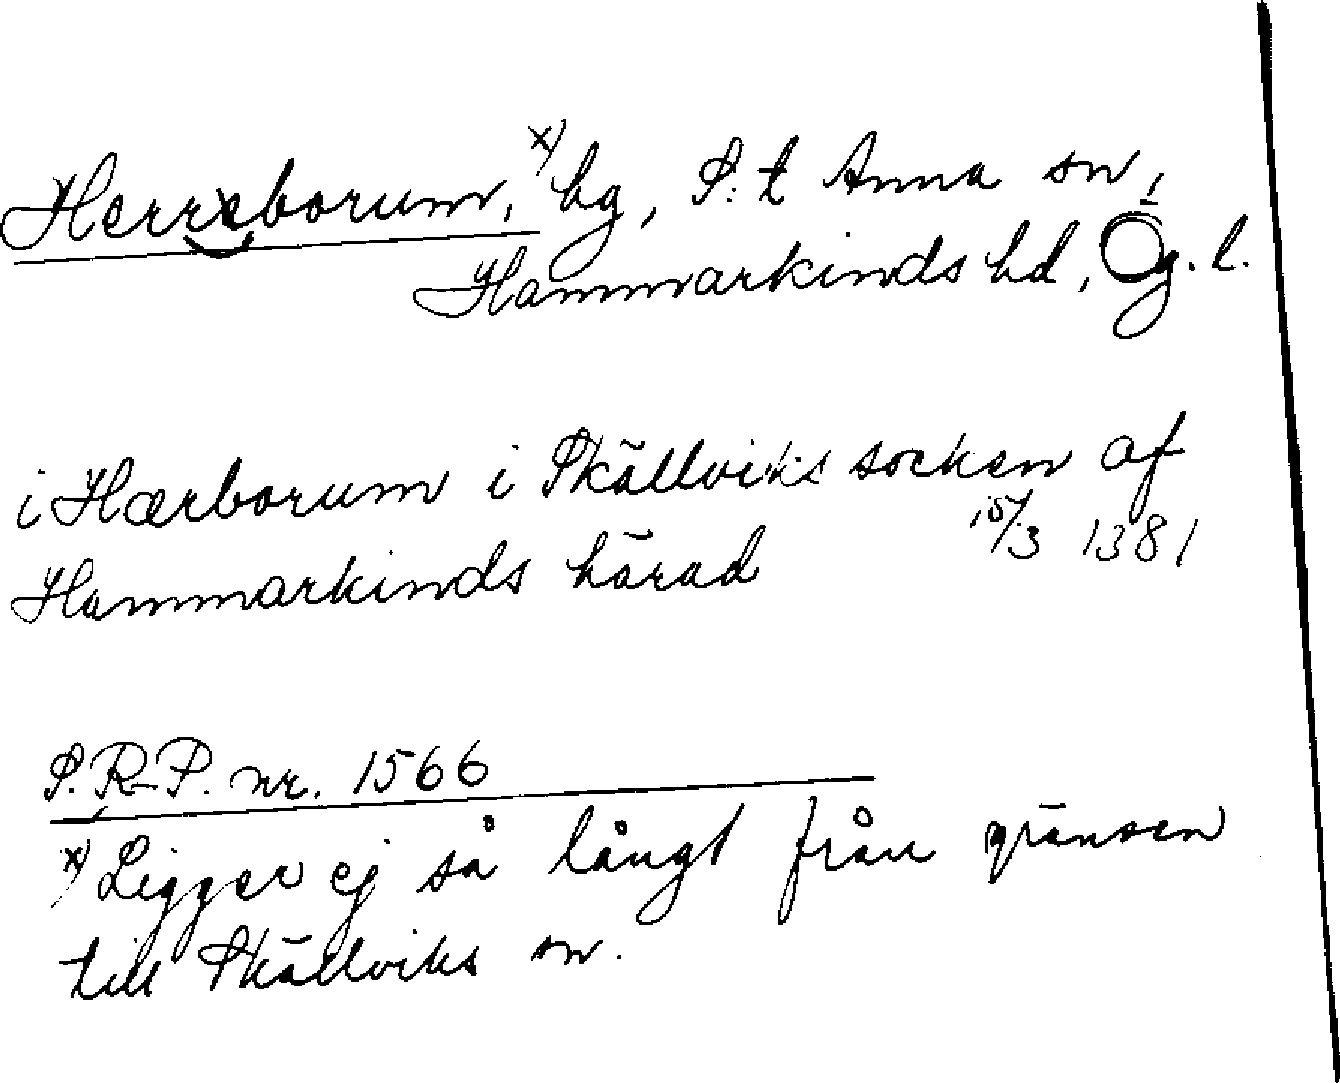 Herreborum, x) hg, S:t Anna sn,
Hammarkinds hd, Ög. l.
i Hærborum i Skällviks socken af
Hammarkinds härad 15/3 1381
S.R.P. nr. 1566
x) Ligger ej så långt från gränsen
till Skällviks sn.